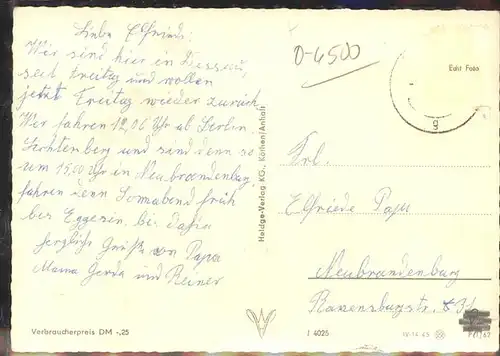 Liebe Elfriede!
Wir sind hier in Dessau,
seit Freitag und wollen
jetzt Freitag wieder zurück
Wir fahren 12,06 Uhr ab Berlin
Lichtenberg und sind denn so
um 15,00 Uhr in Neubrandenburg,
fahren denn Sonnabend früh
bis Eggesin, bis dahin
herzliche Grüße von Papa
Mama Gerda und Reiner
Verbraucherpreis DM -,25
Heldge-Verlag KG., Köthen/Anhalt
0-4500
Echt Foto
g
Frl.
Elfriede
Neubrandenburg
31
I 4025
IV-14-45